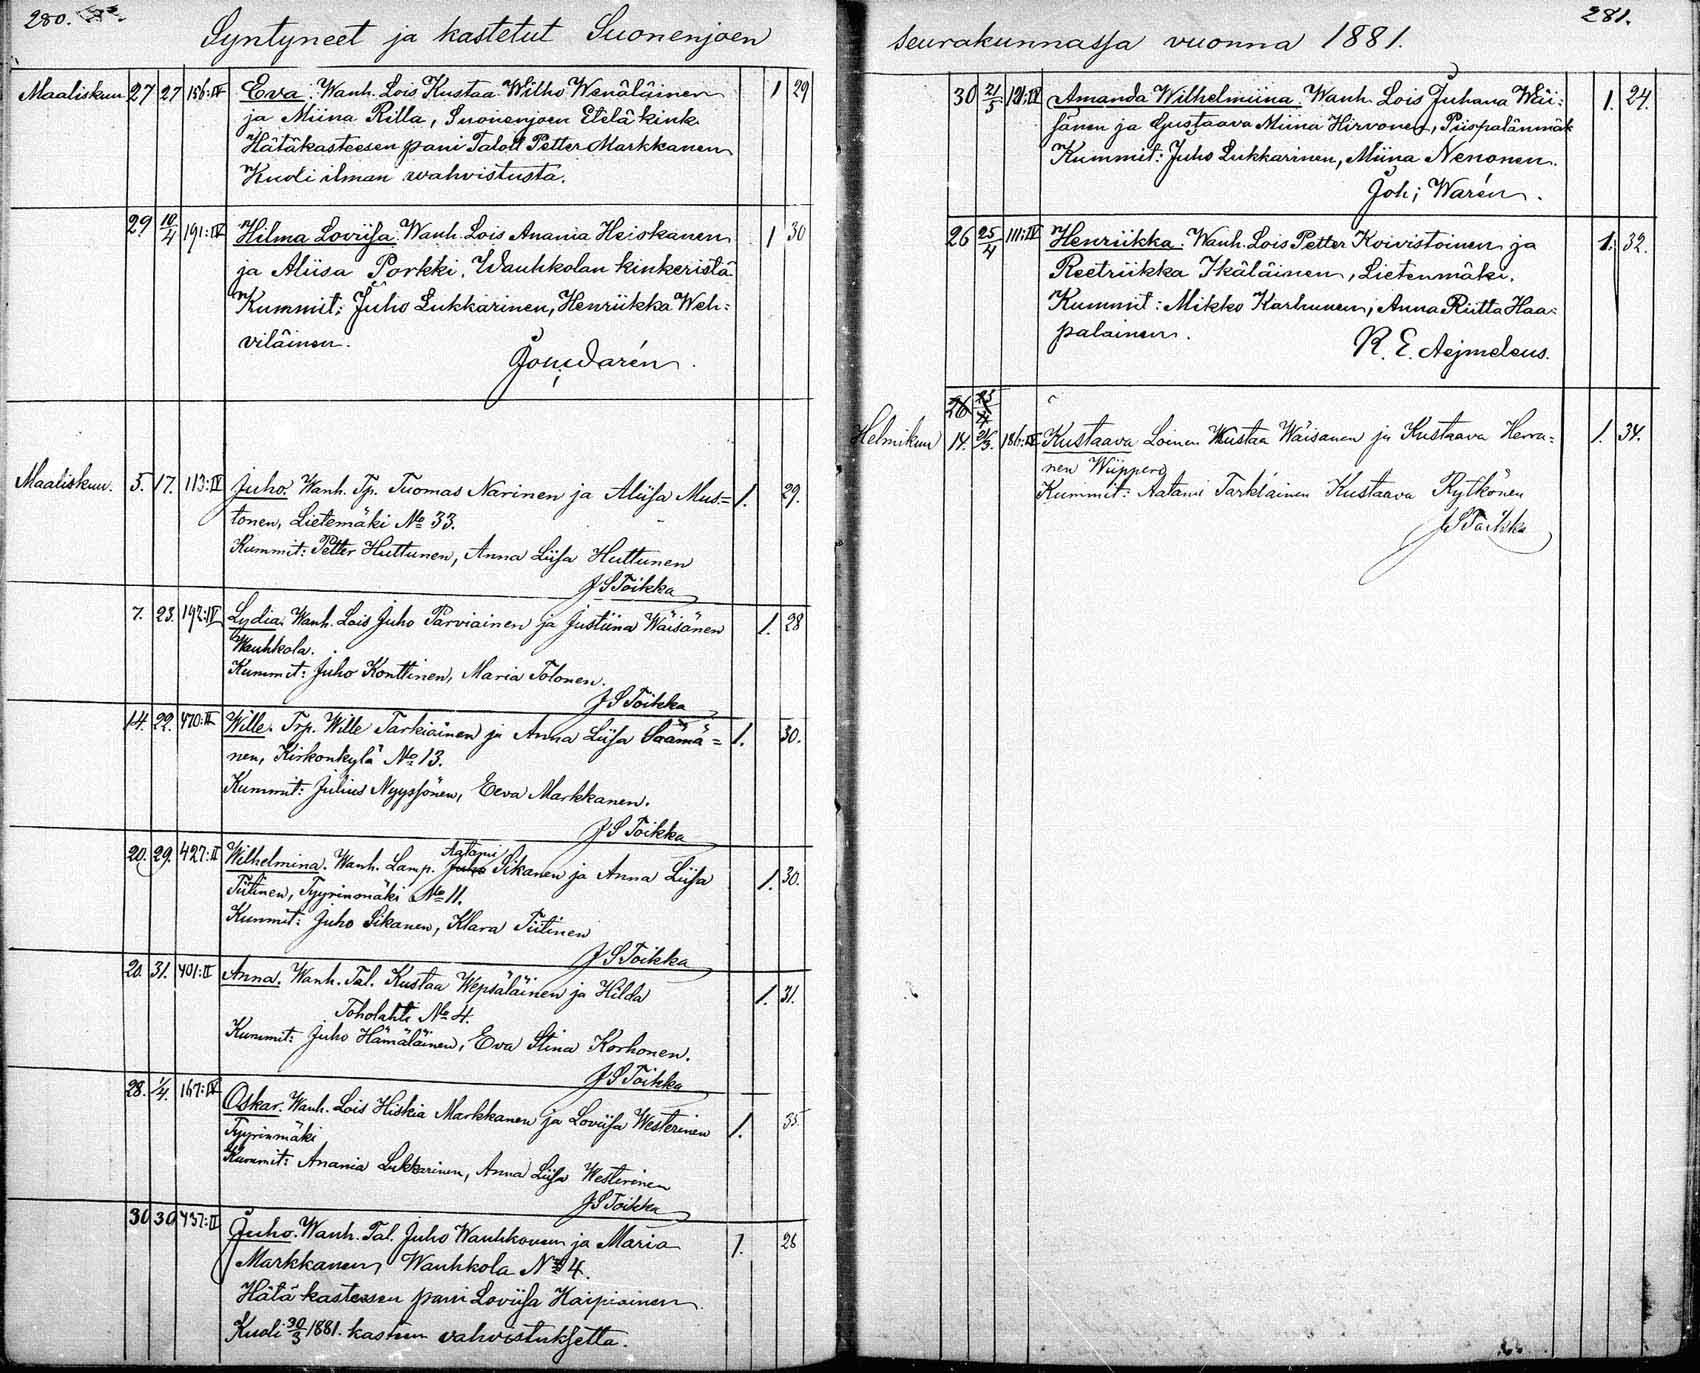 280.
Syntyneet ja kastetut Suonenjoen
Maaliskuu 27 27 156:IV Eva. Wanh. Lois Kustaa Wilho Wenäläinen 1 29
ja Miina Rilla, Suonenjoen Etelä kink.
Hätäkasteesen pani Talol. Petter Markkanen
Kuoli ilman wahvistusta.
29 10/4 191:IV Hilma Loviisa. Wanh. Lois Anania Heiskanen 1 30
ja Aliisa Porkki, Wauhkolan kinkeristä
Kummit: Juho Lukkarinen, Henriikka Weh=
viläinen.
Joh; Warén.
Maaliskuu. 5. 17. 113:IV Juho. Wanh. Tp. Tuomas Narinen ja Aliisa Mus= 1. 29.
tonen, Lietemäki No 33.
Kummit: Petter Huttunen, Anna Liisa Huttunen
J S Toikka
7. 23. 192:IV Lydia. Wanh. Lois Juho Parviainen ja Justiina Wäisänen 1. 28
Wauhkola.
Kummit: Juho Konttinen, Maria Tolonen.
J S Toikka
14. 22. 470:II Wille. Trp. Wille Tarkiainen ja Anna Liisa Saämä= 1. 30.
nen, Kirkonkylä No 13.
Kummit: Julius Nyyssönen, Eeva Markkanen.
J S Toikka
20. 29. 427:II Wilhelmina. Wanh. Lamp. Juho Aatami Sikanen ja Anna Liisa 1. 30.
Tiitinen, Tyyrinmäki No 11.
Kummit: Juho Sikanen, Klara Tiitinen
J S Toikka
20. 31. 401:II Anna. Wanh. Tal. Kustaa Wepsäläinen ja Hilda 1. 31.
Toholahti No 4.
Kummit: Juho Hämäläinen, Eva Stina Korhonen.
J S Toikka
28. 1/4. 167:IV Oskar. Wanh. Lois Hiskia Markkanen ja Loviisa Westerinen 1. 35.
Tyyrinmäki
Kummit: Anania Lukkarinen, Anna Liisa Westerinen
J S Toikka
30 30 437:II Juho. Wanh. Tal. Juho Wauhkonen ja Maria 1. 26
Markkanen, Wauhkola No 4.
Hätä kasteesen pani Loviisa Kaipiainen.
Kuoli 30/3 1881. kasteen vahvistuksetta.
281.
seurakunnassa vuonna 1881.
30 21/5 121:IV Amanda Wilhelmiina. Wanh. Lois Juhana Wäi= 1. 24.
sänen ja Gustaava Miina Hirvonen, Piispalänmäk
Kummit: Juho Lukkarinen, Miina Nenonen.
Joh; Warén.
26 25/4 111:IV Henriikka. Wanh. Lois Petter Koivistoinen ja 1. 32.
Reetriikka Ikäläinen, Lietenmäki.
Kummit: Mikko Karhunen, Anna Riitta Haa=
palainen.
R. E. Aejmeleus.
26 25/4
Helmikuu 14. 21/3. 186:IV Kustaava Loinen Kustaa Wäisanen ja Kustaava Herra= 1. 34.
nen Wiippero
Kummit: Aatami Tarkiainen Kustaava Rytkönen
J S Toikka